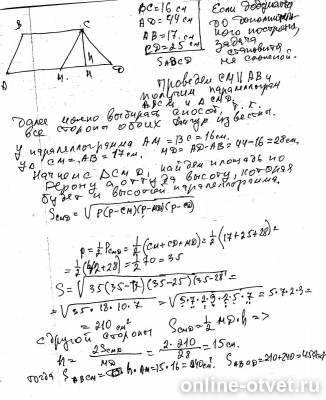 B C
A M H D
h
BC=16 см
AD=44 см
AB=17 см
CD=25 см
SABCD
Если
до
ного построе
задача
становится
не сложной.
Проведем CM || AB и
получим параллелограмм
ABCM и Δ CMD,
далее можно выбирать способ, т. к.
все стороны обоих фигур известны.
У параллелограмма AM = BC = 16см.
У Δ CM = AB = 17см. MD = AD - AB = 44-16 = 28см,
Начнем Δ CMD, найдем площадь по
Герону а оттуда высоту, которая
будет и высотой параллелограмма.
SCMD = √P(P-CM)(P-MD)(P-CD)
P = 1/2 PCMD = 1/2 (CM+CD+MD) = 1/2 (17+25+28) =
= 1/2 (42+28) = 1/2 70 = 35
S = √35(35-17)(35-25)(35-28) =
= √35·18·10·7 = √5·7·2·9·2·5·7 = 5·7·2·3 =
= 210 см²
с другой стороны SCMD = 1/2 MD·h =>
h = 2SCMD / MD = 2·210 / 28 = 15 см.
тогда SABCM = h·AM = 15·16 = 240см² SABCD = 210+240 = 450см²
online-otvet.ru